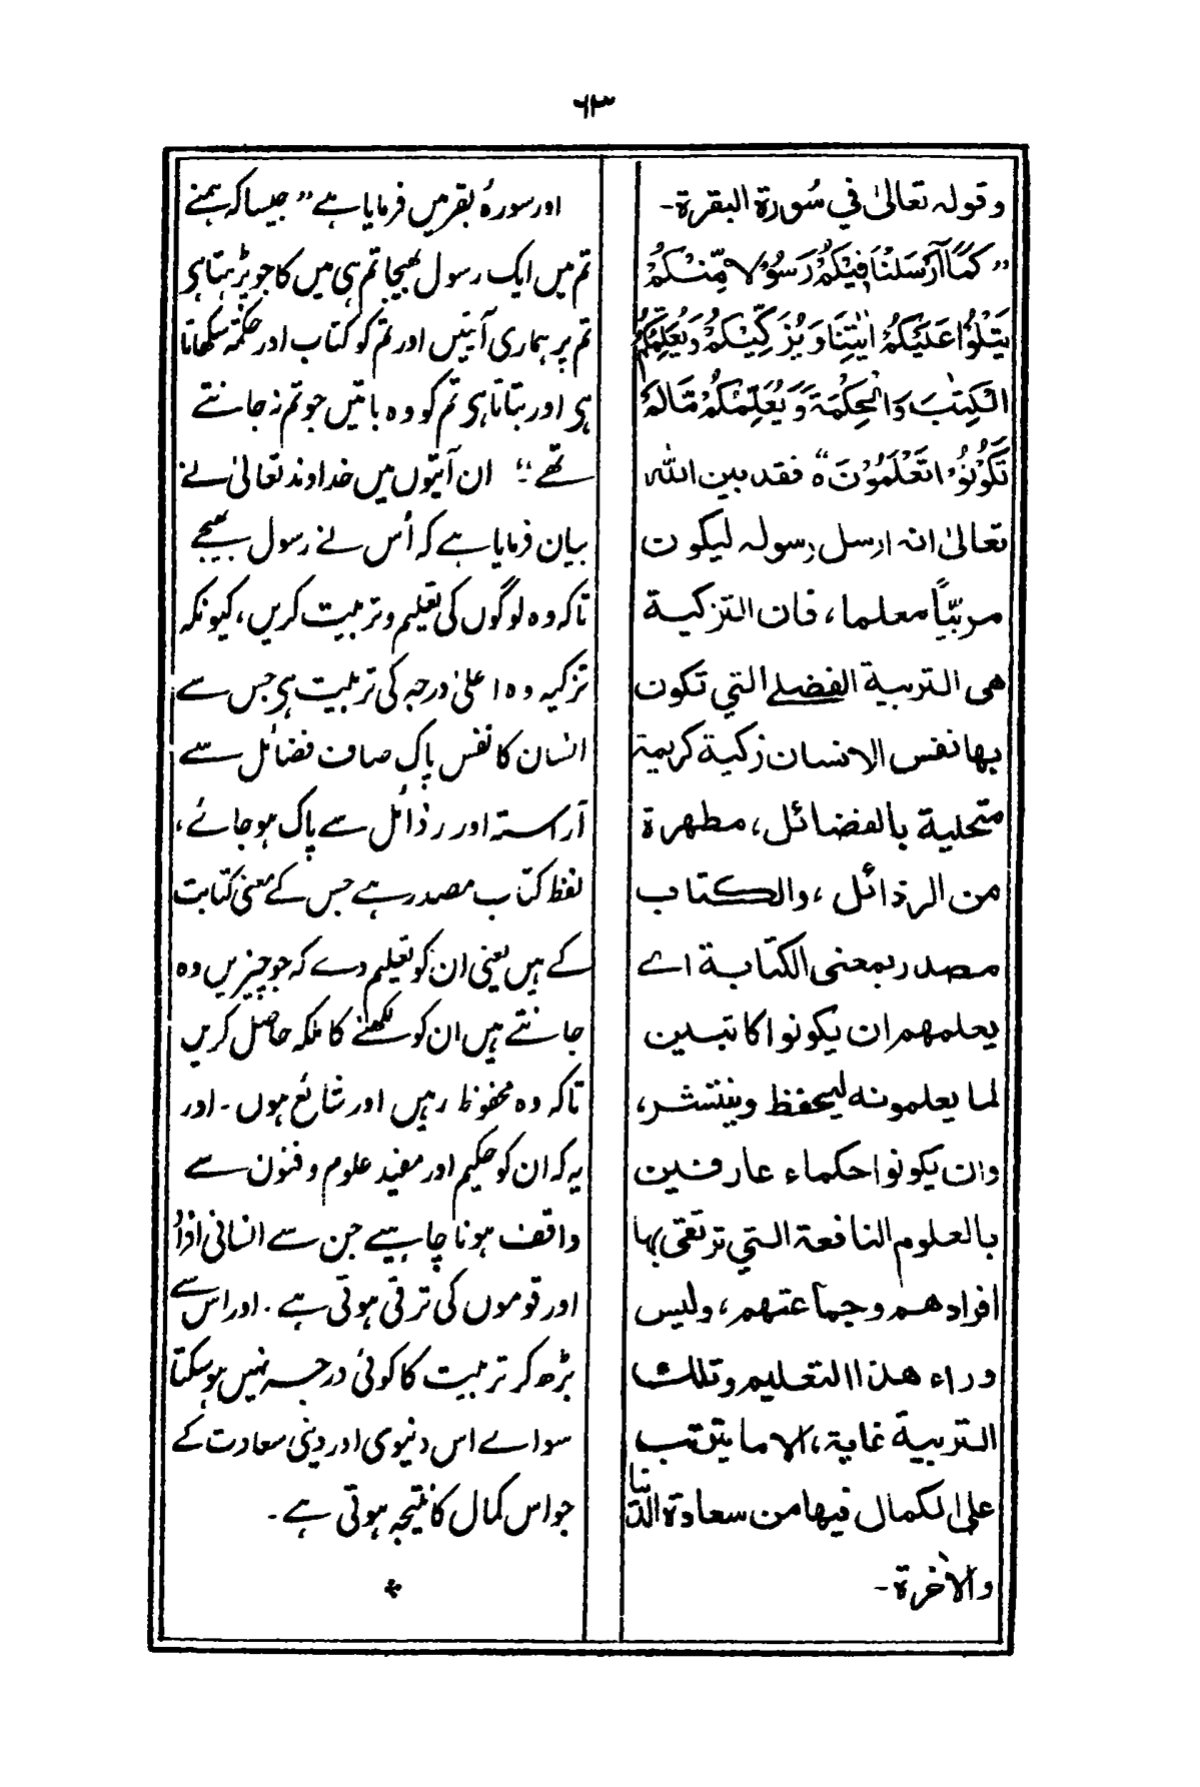 ٦٣
وقولہ تعالیٰ فی سُورۃ البقرۃ۔
”کَمَآ اَرْسَلْنَا فِیْکُمْ رَسُوْلًا مِّنْکُمْ
یَتْلُوْا عَلَیْکُمْ اٰیٰتِنَا وَیُزَکِّیْکُمْ وَیُعَلِّمُکُمُ
الْکِتٰبَ وَالْحِکْمَۃَ وَیُعَلِّمُکُمْ مَّالَمْ
تَکُوْنُوْا تَعْلَمُوْنَ ہ“ فقد بین اللّٰہ
تعالیٰ انہ ارسل رسولہ لیکون
مربّیاً معلما، فان التزکیۃ
ھی التربیۃ الفضلے التی تکون
بھا نفس الانسان زکیۃ کریمۃ
متحلیۃ بالفضائل، مطھرۃ
من الرذائل، والکتاب
مصدر بمعنی الکتابۃ اے
یعلمھم ان یکونوا کاتبین
لما یعلمونہ لیحفظ وینتشر،
وان یکونوا حکماء عارفین
بالعلوم النافعۃ التی ترتقی بہا
افرادھم وجماعتھم، ولیس
وراء ھذا التعلیم وتلک
التربیۃ غایۃ، الا ما یترتب
علی الکمال فیھا من سعادۃ الدنیا
والاٰخرۃ۔
اور سورۂ بقر میں فرمایا ہے ”جیسا کہ ہمنے
تم میں ایک رسول بھیجا تم ہی میں کا جو پڑہتا ہی
تم پر ہماری آیتیں اور تم کو کتاب اور حکمۃ سکھاتا
ہی اور بتاتا ہی تم کو وہ باتیں جو تم نہ جانتے
تھے“ ان آیتوں میں خداوند تعالیٰ نے
بیان فرمایا ہے کہ اُس نے رسول بھیجے
تاکہ وہ لوگوں کی تعلیم و تربیت کریں، کیونکہ
تزکیہ وہ اعلیٰ درجہ کی تربیت ہی جس سے
انسان کا نفس پاک صاف فضائل سے
آراستہ اور رذائل سے پاک ہو جائے،
لفظ کتاب مصدر ہے جس کے معنی کتابت
کے ہیں یعنی ان کو تعلیم دے کہ جو چیزیں وہ
جانتے ہیں ان کو لکھنے کا ملکہ حاصل کریں
تاکہ وہ محفوظ رہیں اور شائع ہوں۔ اور
یہ کہ ان کو حکیم اور مفید علوم و فنون سے
واقف ہونا چاہیے جن سے انسانی افراد
اور قوموں کی ترقی ہوتی ہے۔ اور اس سے
بڑھ کر تربیت کا کوئی درجہ نہیں ہو سکتا
سواے اس دنیوی اور دینی سعادت کے
جو اس کمال کا نتیجہ ہوتی ہے۔